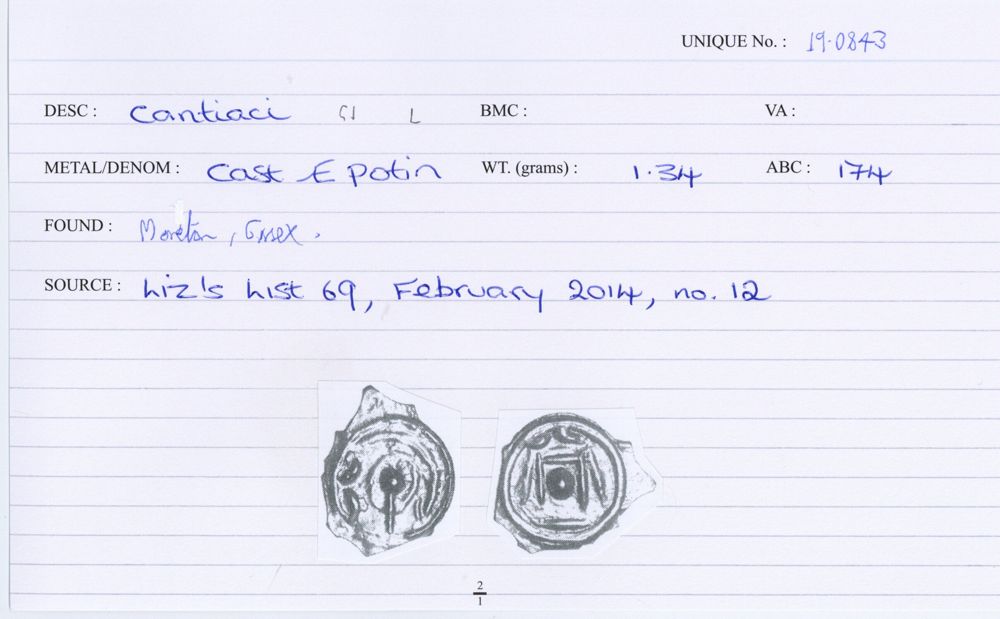 UNIQUE No. : 19.0843
DESC : Cantiaci L BMC : VA :
METAL/DENOM : Cast Æ Potin WT. (grams) : 1.34 ABC : 174
FOUND : Moreton, Essex.
SOURCE : Liz's List 69, February 2014, no. 12
2
1